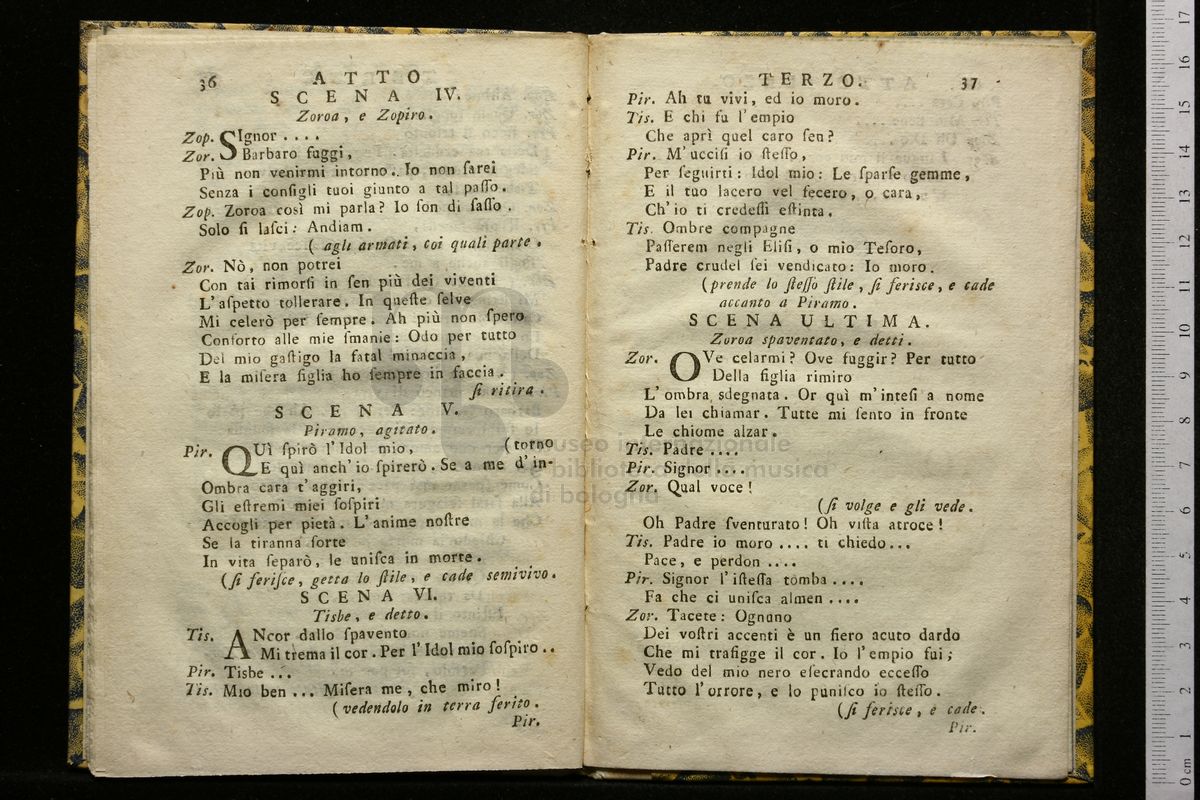 36 ATTO
SCENA IV.
Zoroa, e Zopiro.
Zop. SIgnor ....
Zor. Barbaro fuggi,
Più non venirmi intorno.. Io non ſarei
Senza i conſigli tuoi giunto a tal paſſo.
Zop. Zoroa così mi parla? Io ſon di ſaſſo.
Solo ſi laſci: Andiam.
( agli armati, coi quali parte.
Zor. Nò, non potrei
Con tai rimorſi in ſen più dei viventi
L'aſpetto tollerare. In queſte ſelve
Mi celerò per ſempre. Ah più non ſpero
Conforto alle mie ſmanie: Odo per tutto
Del mio gaſtigo la fatal minaccia,
E la miſera figlia ho ſempre in faccia.
ſi ritira.
SCENA V.
Piramo, agitato.
Pir. QUì ſpirò l'Idol mio, (torno
E quì anch'io ſpirerò. Se a me d'in-
Ombra cara t'aggiri,
Gli eſtremi miei ſoſpiri
Accogli per pietà. L'anime noſtre
Se la tiranna ſorte
In vita ſeparò, le uniſca in morte.
(ſi feriſce, getta lo ſtile, e cade semivivo.
SCENA VI.
Tisbe, e detto.
Tis. ANcor dallo ſpavento
Mi trema il cor. Per l'Idol mio ſoſpiro..
Pir. Tisbe ...
Tis. Mio ben ... Miſera me, che miro!
(vedendolo in terra ferito.
Pir.
TERZO. 37
Pir. Ah tu vivi, ed io moro.
Tis. E chi fu l'empio
Che aprì quel caro ſen?
Pir. M'ucciſi io ſteſſo,
Per ſeguirti: Idol mio: Le ſparſe gemme,
E il tuo lacero vel fecero, o cara,
Ch'io ti credeſſi eſtinta.
Tis. Ombre compagne
Paſſerem negli Eliſi, o mio Teſoro,
Padre crudel ſei vendicato: Io moro.
(prende lo ſteſſo ſtile, ſi feriſce, e cade
accanto a Piramo.
SCENA ULTIMA.
Zoroa spaventato, e detti.
Zor. OVe celarmi? Ove fuggir? Per tutto
Della figlia rimiro
L'ombra sdegnata. Or quì m'inteſi a nome
Da lei chiamar. Tutte mi ſento in fronte
Le chiome alzar.
Tis. Padre ....
Pir. Signor ....
Zor. Qual voce!
(ſi volge e gli vede.
Oh Padre ſventurato! Oh viſta atroce!
Tis. Padre io moro .... ti chiedo...
Pace, e perdon ....
Pir. Signor l'iſteſſa tomba ....
Fa che ci uniſca almen ....
Zor. Tacete: Ognuno
Dei voſtri accenti è un fiero acuto dardo
Che mi trafigge il cor. Io l'empio fui;
Vedo del mio nero eſecrando ecceſſo
Tutto l'orrore, e lo puniſco io ſteſſo.
(ſi feriſce, e cade.
Pir.
museo internazionale
e biblioteca della musica
di bologna
0 cm 1 2 3 4 5 6 7 8 9 10 11 12 13 14 15 16 17